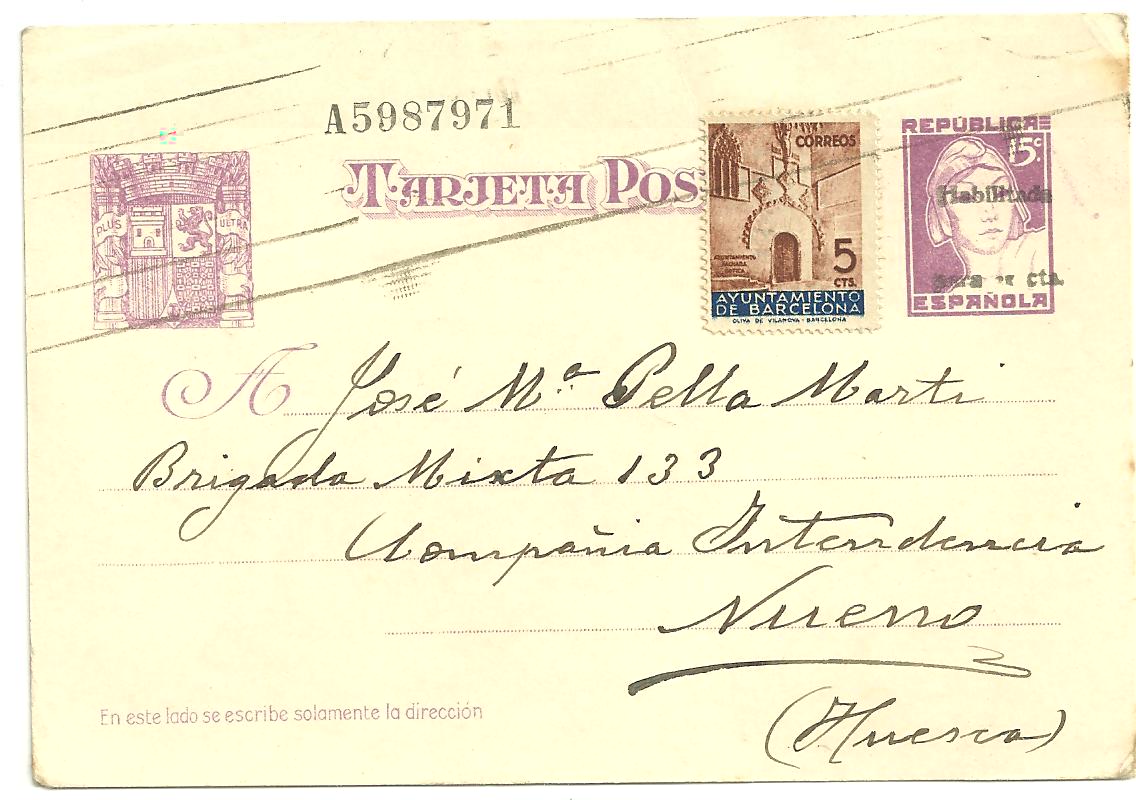 A5987971
TARJETA POS
PLUS ULTRA
CORREOS
AYUNTAMIENTO
FACHADA
GOTICA
5
CTS.
AYUNTAMIENTO
DE BARCELONA
OLIVA DE VILANOVA - BARCELONA
REPÚBLICA
15c.
Habilitada
para cts.
ESPAÑOLA
A José Mª Pella Marti
Brigada Mixta 133
Compañia Intendencia
Nueno
(Huesca)
En este lado se escribe solamente la dirección